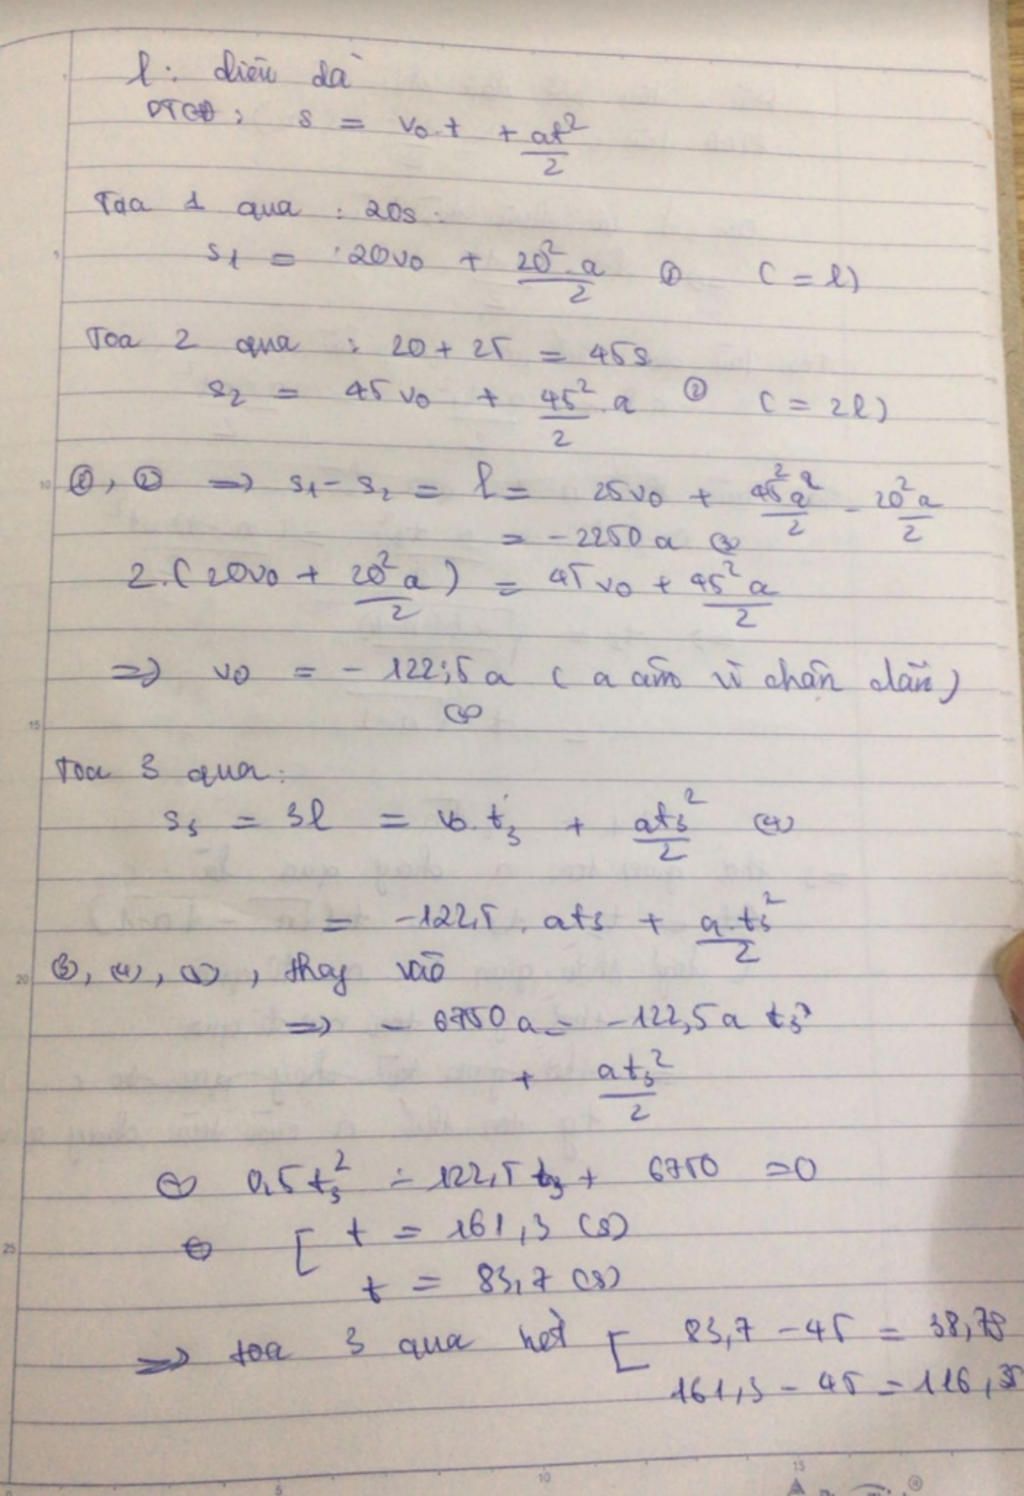 l : chiều dà
PTCĐ : s = v₀.t + at²/2
Toa 1 qua : 20s.
s₁ = 20v₀ + 20².a/2 ① (= l)
Toa 2 qua : 20 + 25 = 45s
s₂ = 45v₀ + 45².a/2 ② (= 2l)
①, ② => s₁ - s₂ = l = 25v₀ + 45²a/2 - 20²a/2
= -2250a ③
2.(20v₀ + 20²a/2) = 45v₀ + 45²a/2
=> v₀ = -122,5a (a âm vì chần dần)
Toa 3 qua:
s₃ = 3l = v₀.t₃ + at₃²/2 (4)
= -122,5.at₃ + a.t₃²/2
③, (4), (5), thay vào
=> -6750a = -122,5a t₃
+ at₃²/2
⇔ 0,5t₃² - 122,5t₃ + 6750 = 0
⇔ [ t = 161,3 (s)
t = 83,7 (s)
=> toa 3 qua hết [ 83,7 - 45 = 38,7s
161,3 - 45 = 116,3s